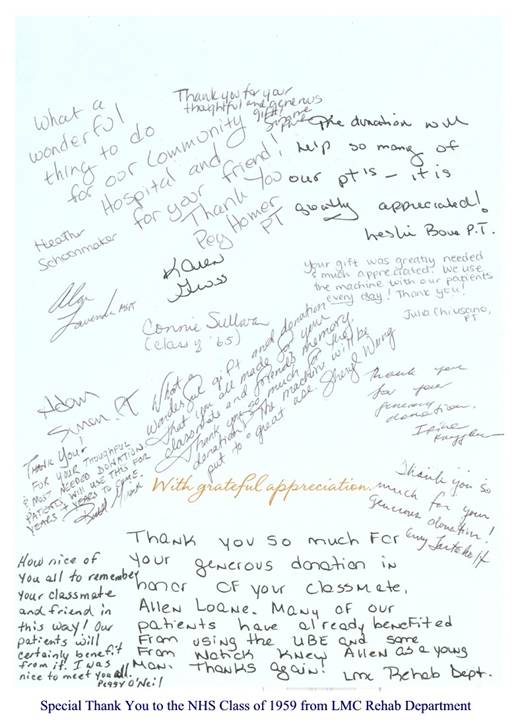 What a
wonderful
thing to do
for our Community
Hospital and
for your friend!
Thank You
Peg Homer
PT
Thank you for your
thoughtful and generous
gift!
The donation will
help so many of
our pt's - it is
greatly appreciated!
Leslie Bove P.T.
Heather
Schoonmaker
Karen
Gross
Your gift was greatly needed
& much appreciated. We use
the machine with our patients
every day! Thank you!
Julia Chiusano,
PT
Connie Sullivan
(class of '65)
What a
wonderful gift and donation
that you all made in your
classmate and friend's memory.
Thank you so much for the
donation! The machine will be
put to a great use. Sheryl Wang
Adam
Simon, PT
Thank you
for your
generous
donation.
Irina
Thank You!
For your thoughtful
& most needed donation
patients will use this for
years & years to come.
With grateful appreciation.
Thank you so
much for your
generous donation!
Thank you so much for
your generous donation in
honor of your classmate,
Allen Loane. Many of our
patients have already benefited
from using the UBE and some
from Natick knew Allen as a young
man. Thanks again! LMC Rehab Dept.
How nice of
you all to remember
your classmate
and friend in
this way! Our
patients will
certainly benefit
from it! I was
nice to meet you all.
Peggy O'Neil
Special Thank You to the NHS Class of 1959 from LMC Rehab Department